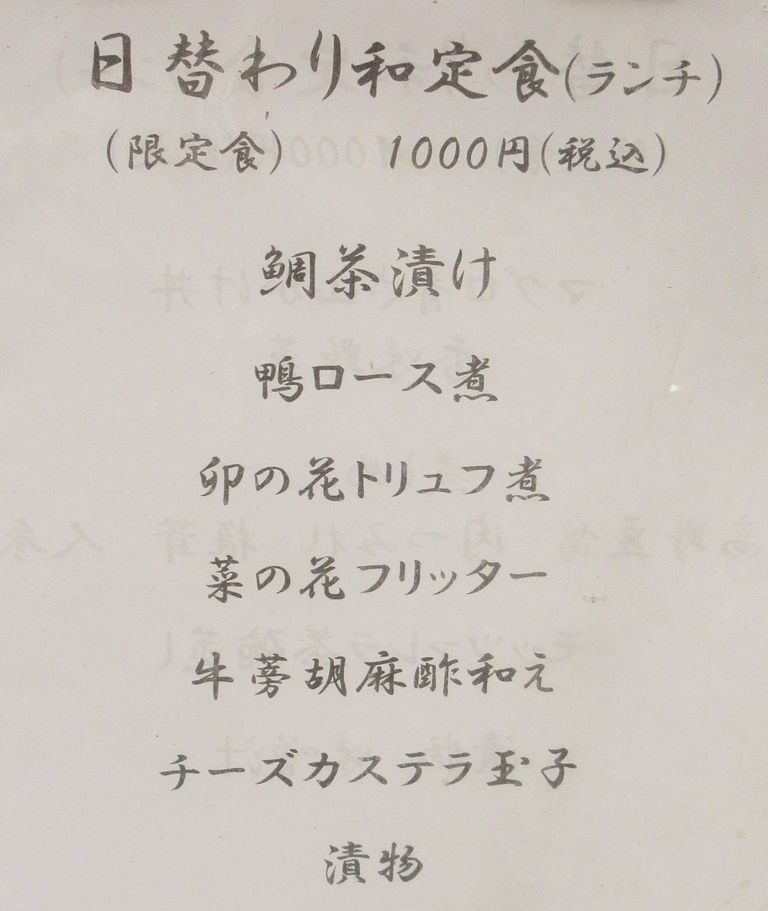 日替わり和定食(ランチ)
(限定食) 1000円(税込)
鯛茶漬け
鴨ロース煮
卯の花トリュフ煮
菜の花フリッター
牛蒡胡麻酢和え
チーズカステラ玉子
漬物